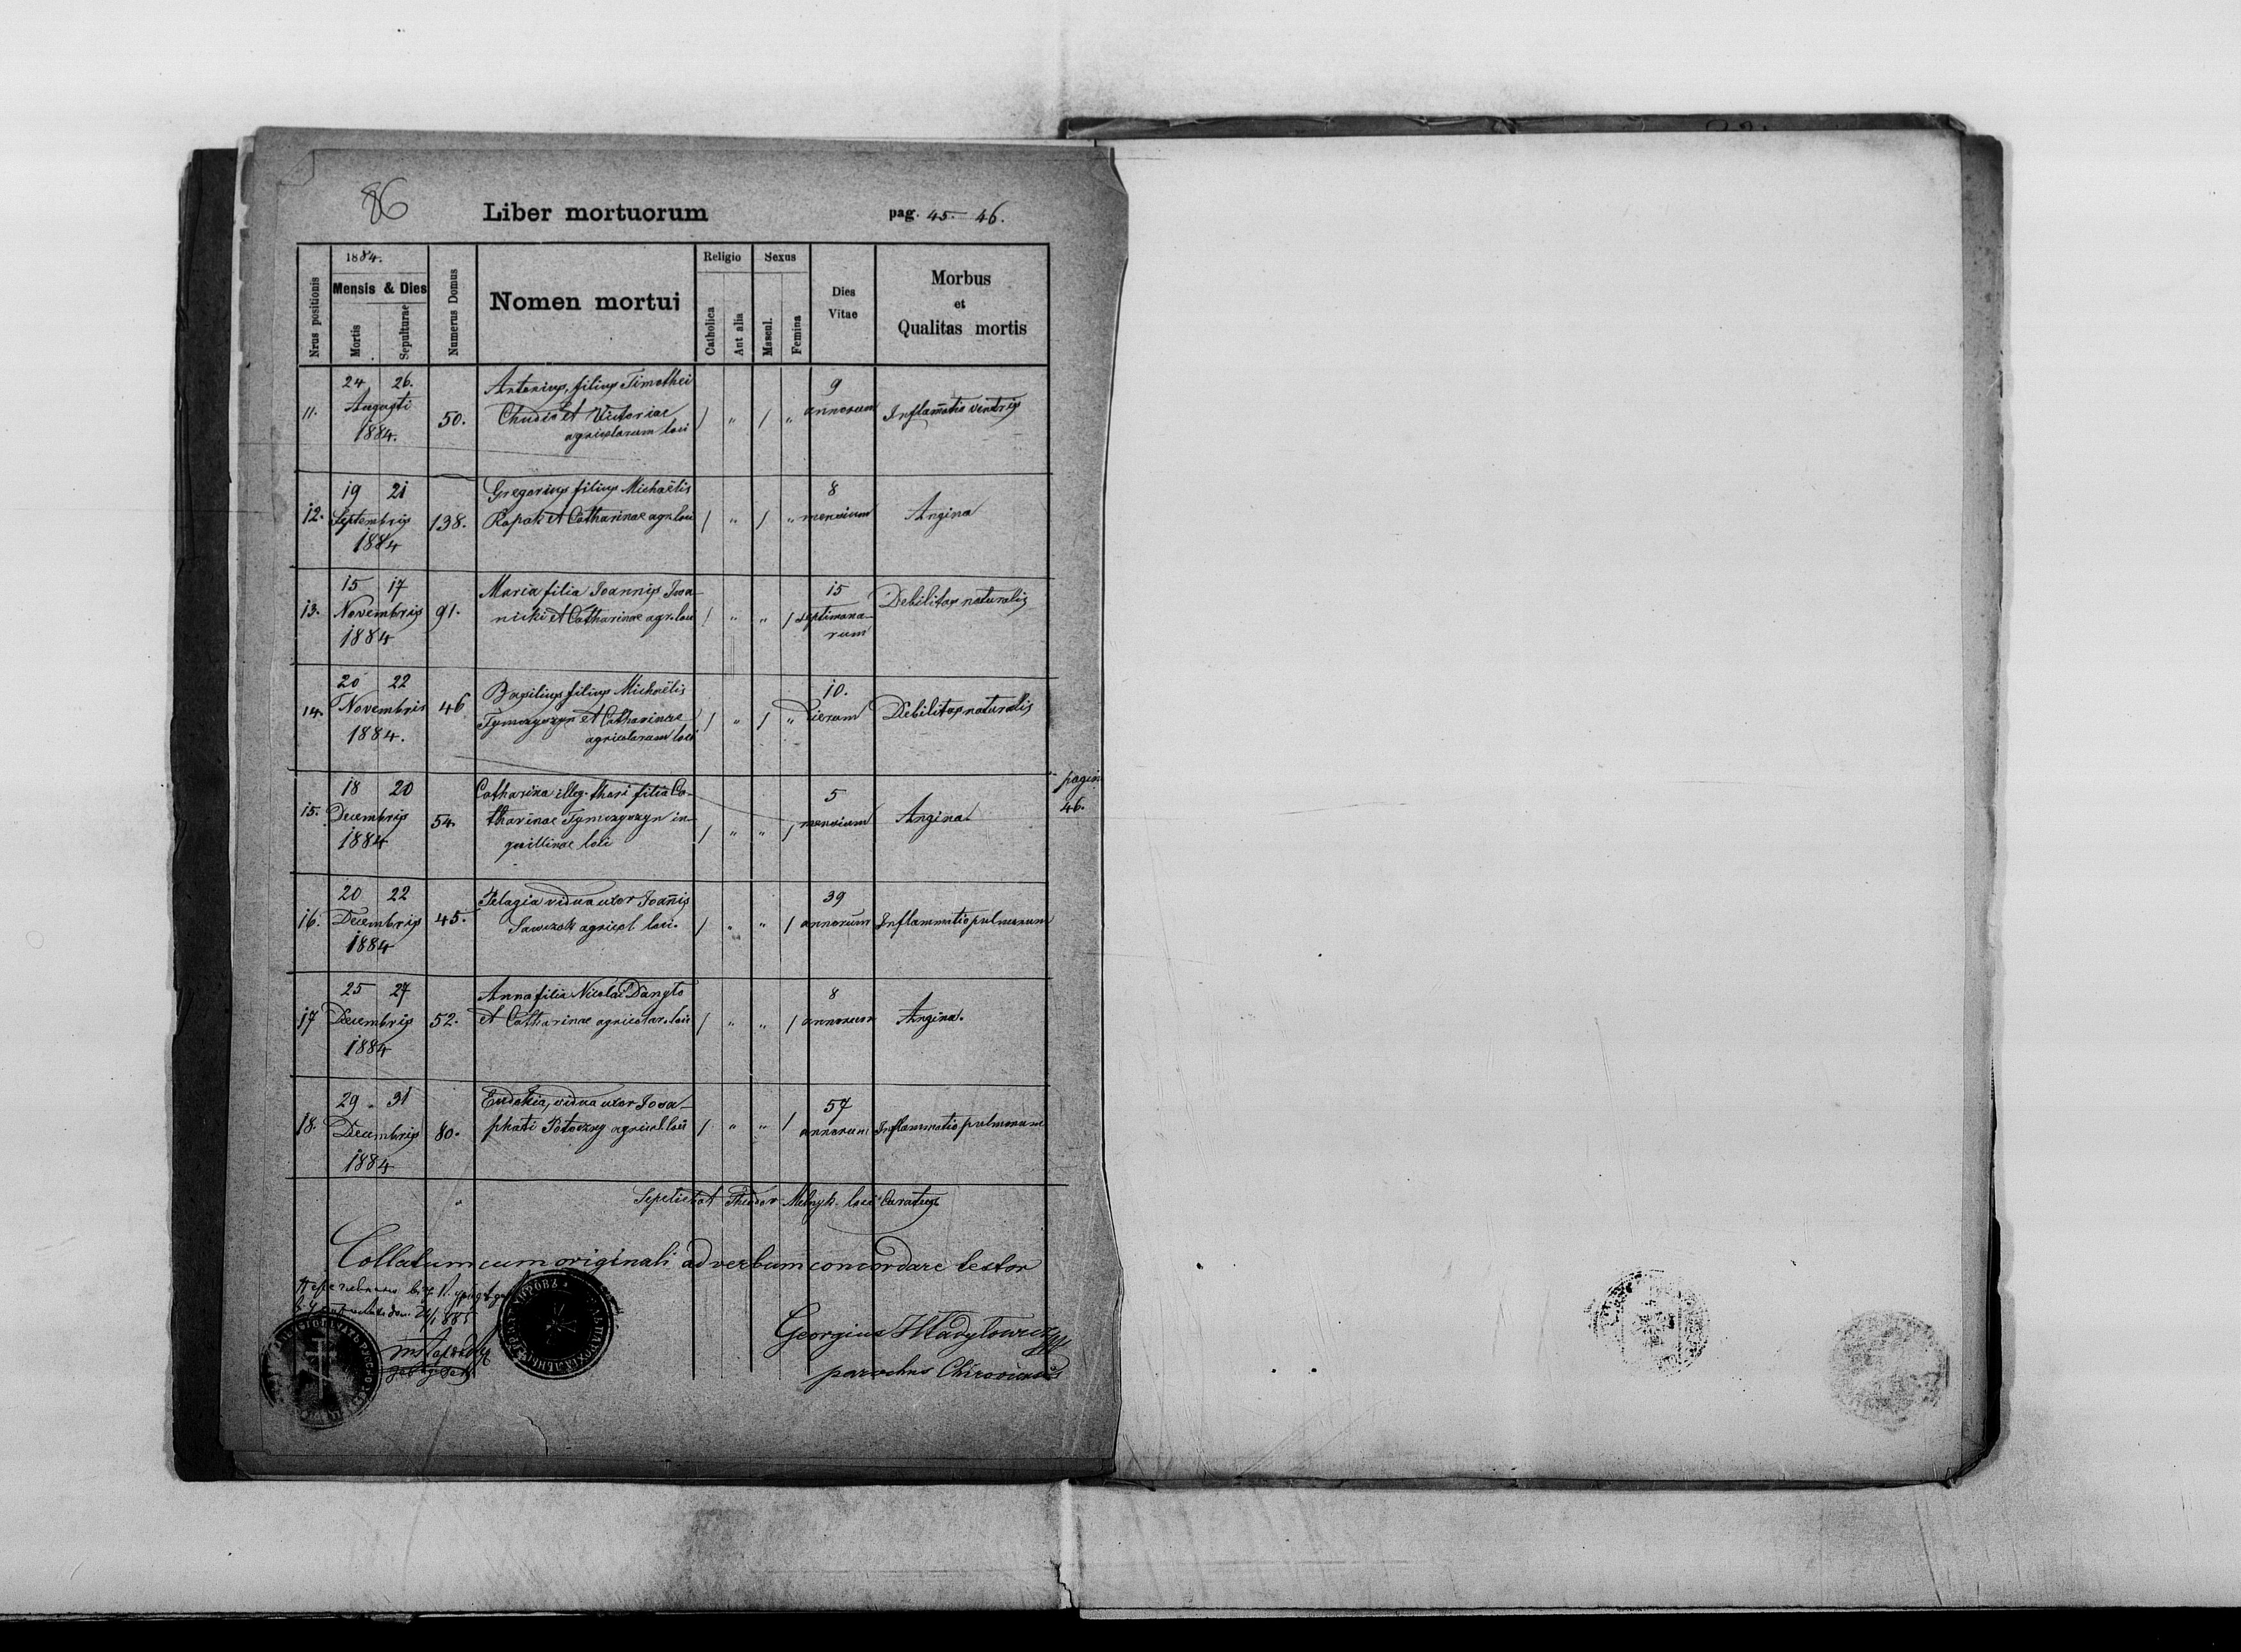 86
Liber mortuorum
pag. 45. 46.
Nrus positionis
1884.
Mensis & Dies
Mortis
Sepulturae
Numerus Domus
Nomen mortui
Religio
Catholica
Aut alia
Sexus
Mascul.
Femina
Dies Vitae
Morbus
et
Qualitas mortis
11.
24 26.
Augusti
1884.
50.
Antonius, filius Timothei
et Victoriae
agricolarum loci
/ " / "
9
annorum
Inflammatio ventris
12.
19 21
Septembris
1884
138.
Gregorius filius Michaëlis
Rapak et Catharinae agr. loci
/ " / "
8
mensium
Angina
13.
15 17
Novembris
1884
91.
Maria filia Joannis Iwa-
nicki et Catharinae agr. loci
/ " " /
15
septimana-
rum
Debilitas naturalis
14.
20 22
Novembris
1884.
46
Basilius filius Michaëlis
Tymczyszyn et Catharinae
agricolarum loci
/ " / "
10.
dierum
Debilitas naturalis
pagina
46.
15.
18 20
Decembris
1884
54.
Catharina illeg. thori filia Ca-
tharinae Tymczyszyn in-
quillinae loci
/ " " /
5
mensium
Angina
16.
20 22
Decembris
1884
45.
Pelagia vidua uxor Joannis
Sawczak agricol. loci.
/ " " /
39
annorum
Inflammatio pulmonum
17
25 27
Decembris
1884
52.
Anna filia Nicolai Danyło
et Catharinae agricolar. loci
/ " " /
8
annorum
Angina.
18.
29 31
Decembris
1884
80.
Eudokia, vidua uxor Josa-
phati Potoczny agricol. loci
/ " " /
57
annorum
Inflammatio pulmonum
Sepeliebat Theodor Melnyk loci Curatus
Collatum cum originali ad verbum concordare testor
Georgius
parochus Chirovensis